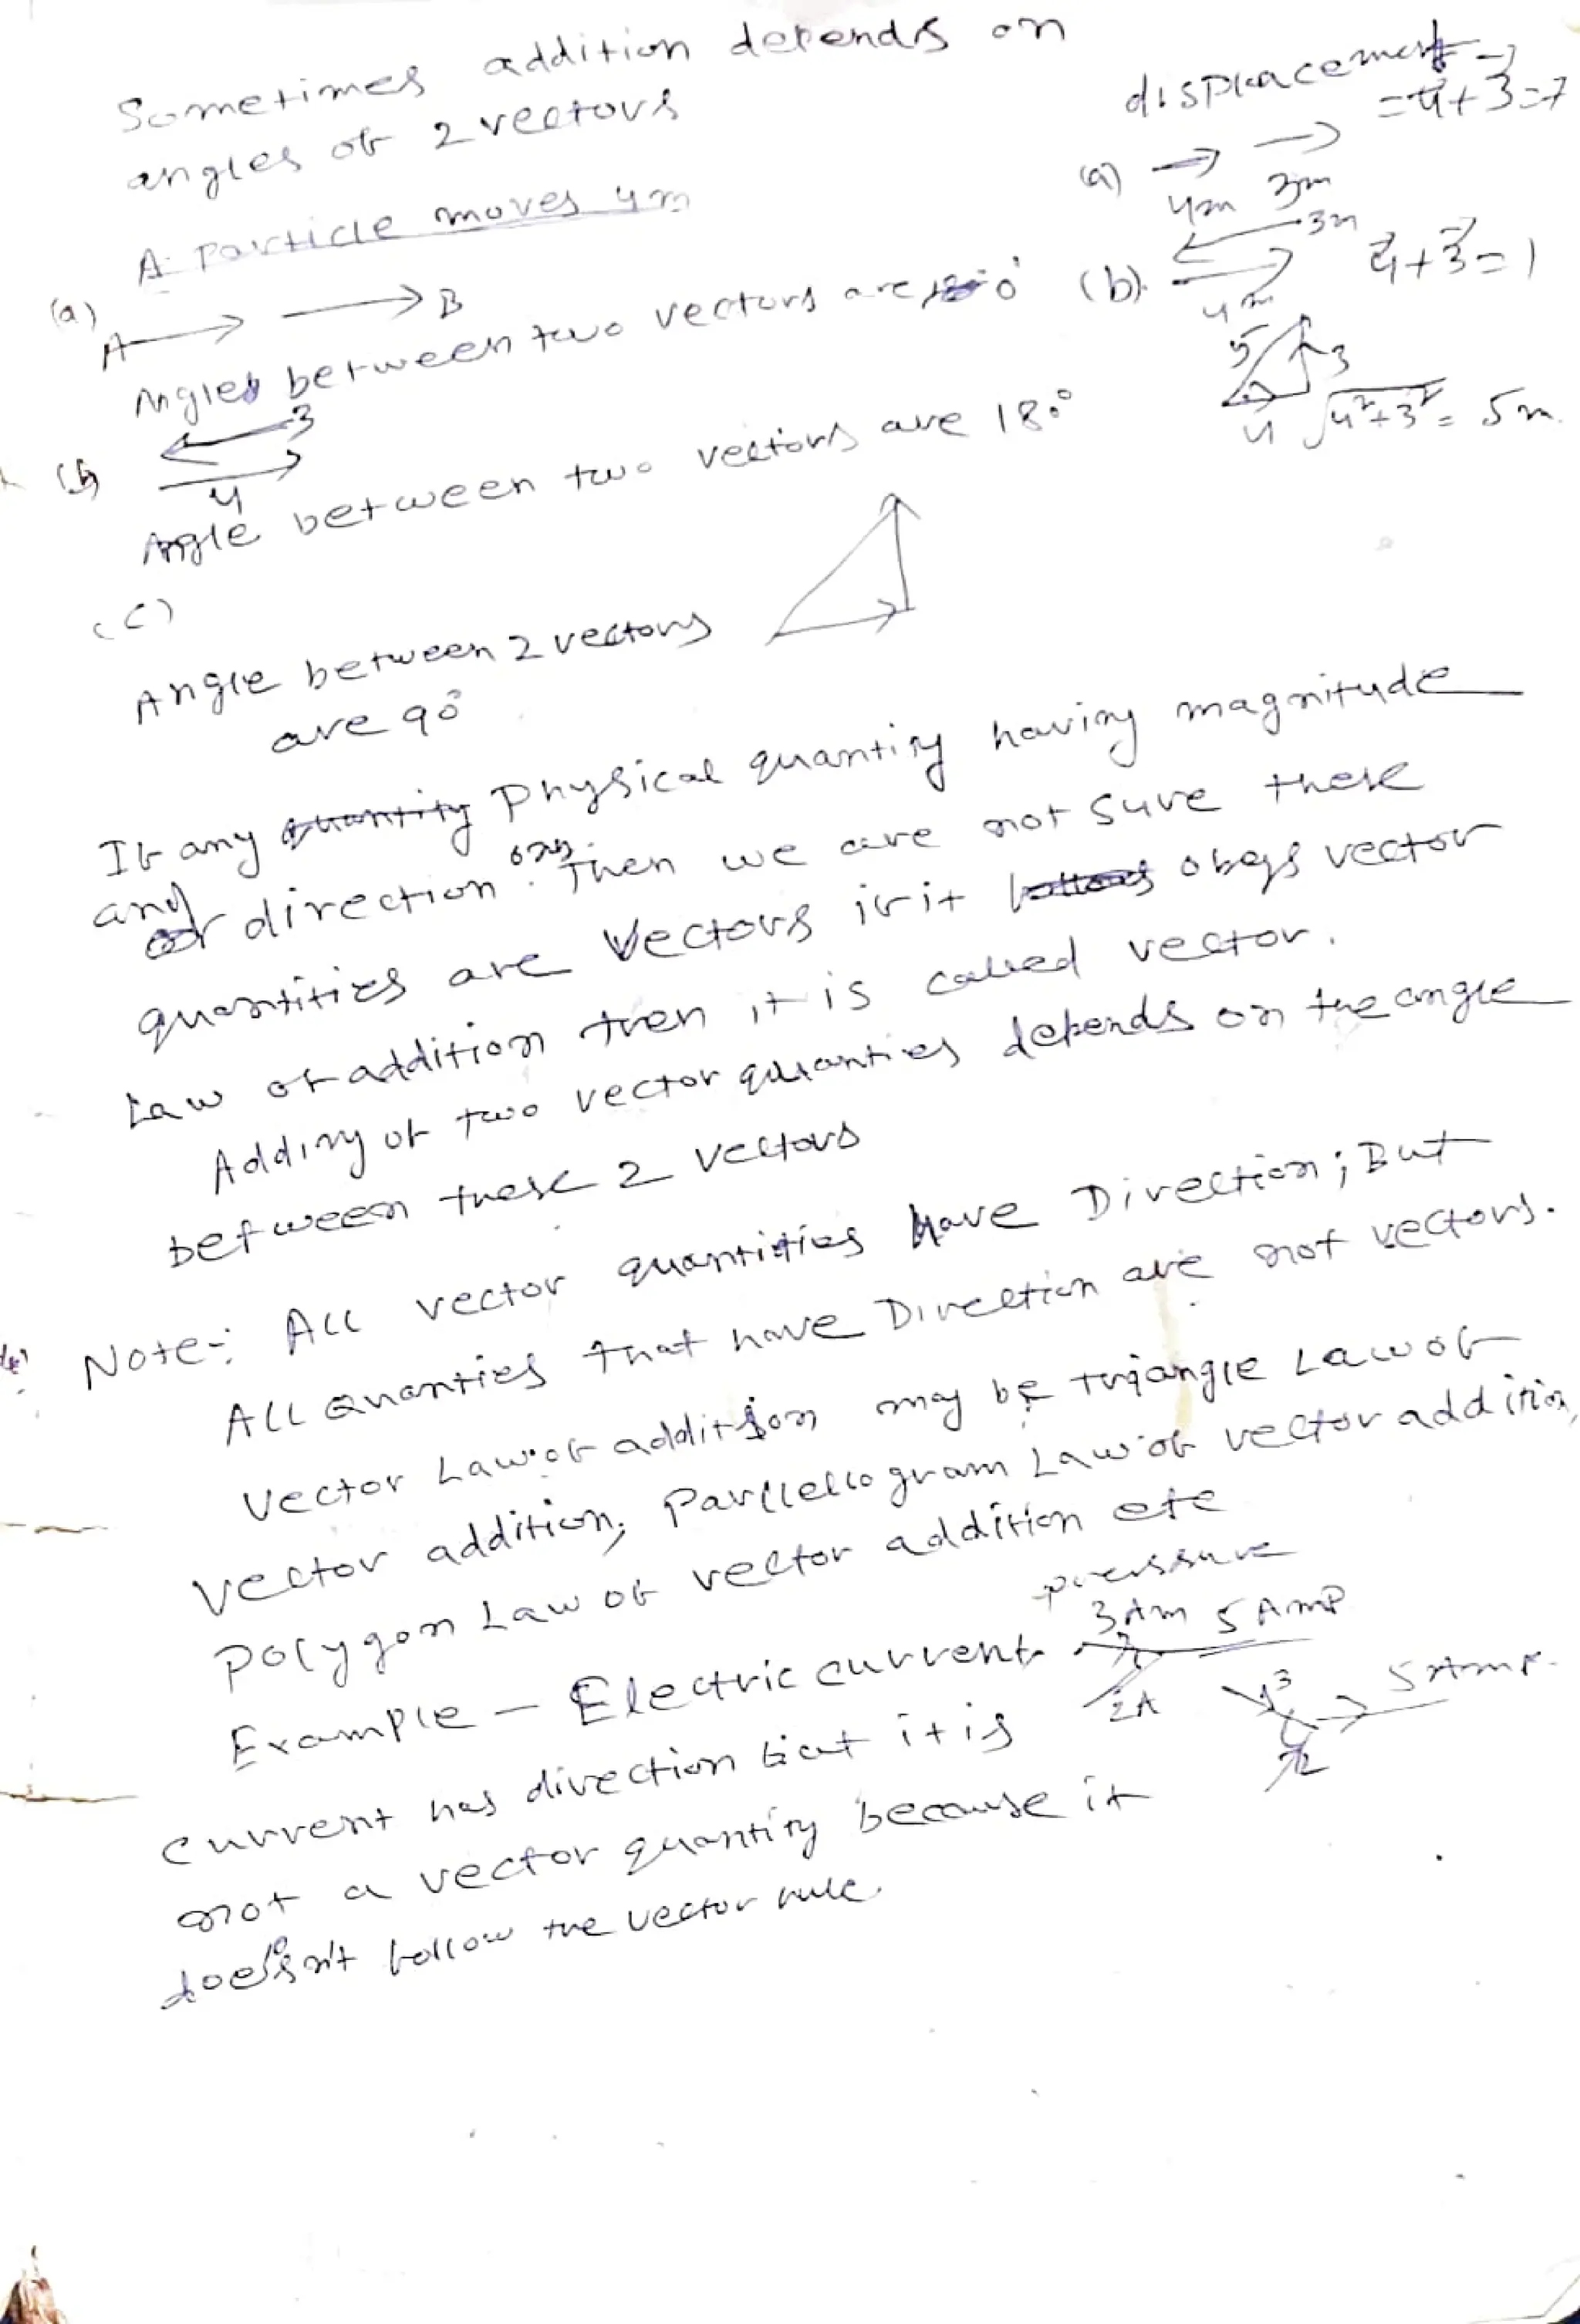 Sometimes addition depends on
angles of 2 vectors
A particle moves 4m
(a) A B
Angles between two vectors are 0°
(b) 3
4
Angle between two vectors are 180°
(c)
Angle between 2 vectors
are 90°
displacement
= 4 + 3 = 7
(a) 4m 3m
(b) 3m 4 + 3 = 1
4m
5 3
4 √4²+3² = 5m
If any quantity Physical quantity having magnitude
and direction only. Then we are not sure these
quantities are vectors if it follows obeys vector
Law of addition then it is called vector.
Adding of two vector quanties depends on the angle
between these 2 vectors
Note-: All vector quantities have Direction; But
All Quanties that have Direction are not vectors.
Vector Law of addition may be triangle Law of
vector addition, Parllellogram Law of vector addition,
Polygon Law of vector addition etc
Example - Electric current. pressure
3Am 5 Amp
2A
3 5 Amp.
2
current has direction but it is
not a vector quantity because it
doesn't follow the vector rule.